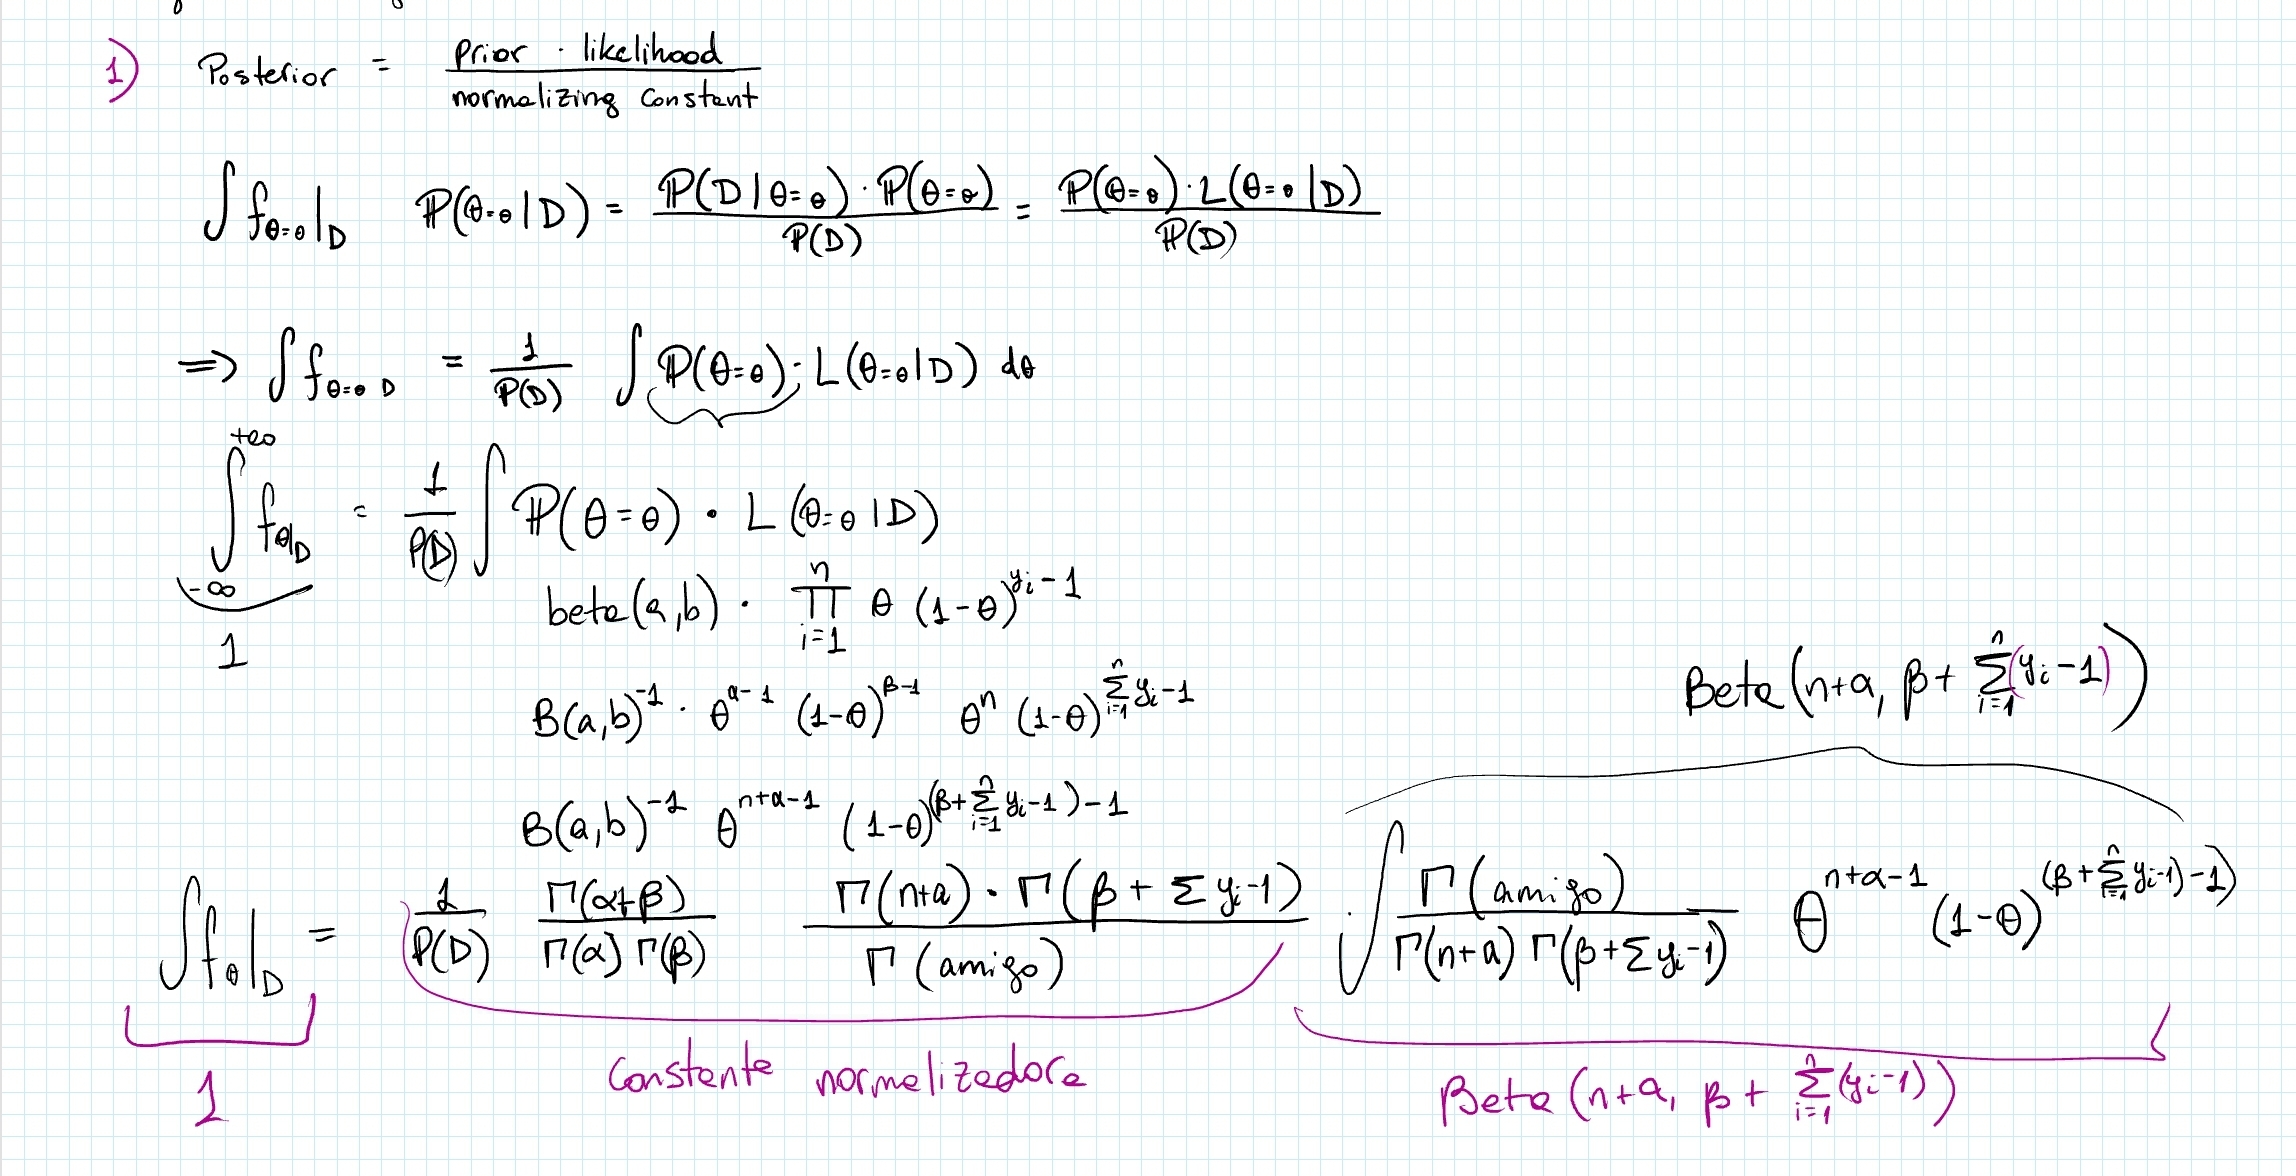 1) Posterior = prior · likelihood / normalizing constant
∫ f_{θ=θ|D} ℙ(θ=θ|D) = ℙ(D|θ=θ)·ℙ(θ=θ) / ℙ(D) = ℙ(θ=θ)·L(θ=θ|D) / ℙ(D)
=> ∫ f_{θ=θ D} = 1/ℙ(D) ∫ ℙ(θ=θ); L(θ=θ|D) dθ
∫_{-∞}^{+∞} f_{θ|D} = 1/ℙ(D) ∫ ℙ(θ=θ) · L(θ=θ|D)
1
beta(a,b) · ∏_{i=1}^{n} θ (1-θ)^{y_i-1}
B(a,b)^{-1} · θ^{α-1} (1-θ)^{β-1} θ^n (1-θ)^{∑_{i=1}^{n} y_i-1}
Beta(n+α, β+ ∑_{i=1}^{n}(y_i-1))
B(a,b)^{-1} θ^{n+α-1} (1-θ)^{(β+∑_{i=1}^{n} y_i-1)-1}
∫ f_{θ|D} = 1/ℙ(D) Γ(α+β) / Γ(α)Γ(β) Γ(n+a)·Γ(β+∑y_i-1) / Γ(amigo) · ∫ Γ(amigo) / Γ(n+a)Γ(β+∑y_i-1) θ^{n+α-1} (1-θ)^{(β+∑_{i=1}^{n} y_i-1)-1)}
1
Constante normalizadora
Beta(n+a, β+ ∑_{i=1}^{n}(y_i-1))